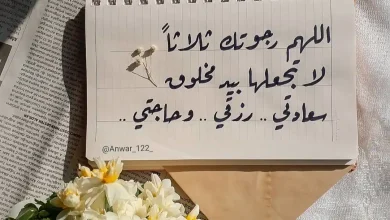 اللهم رجوتك ثلاثاً
لا تجعلها بيد مخلوق
سعادتي .. رزقي .. وحاجتي ..
@Anwar_122_